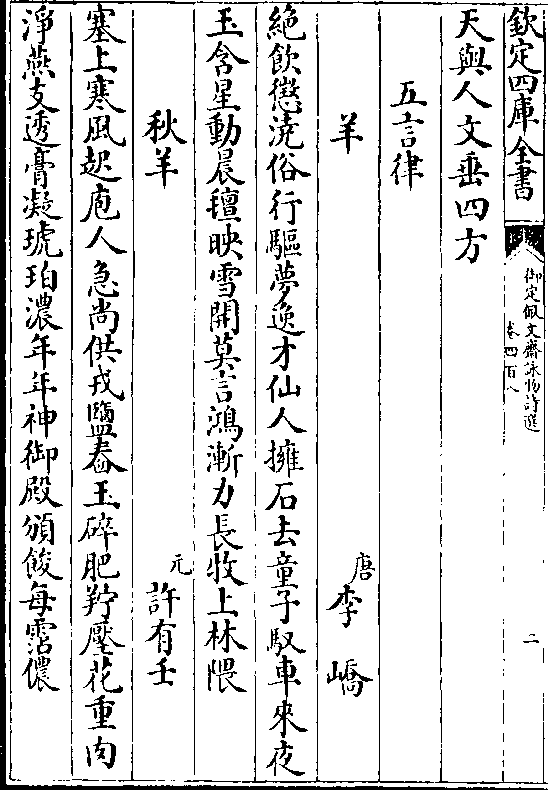 欽定四庫全書
御定佩文齋詠物詩選
卷四百八
二
天與人文垂四方
五言律
羊
唐李嶠
絶飲懲澆俗行驅夢逸才仙人擁石去童子馭車來夜
玉含星動晨氊映雪開莫言鴻漸力長牧上林隈
秋羊
元許有壬
塞上寒風起庖人急尚供戎鹽舂玉碎肥羜壓花重肉
淨燕支透膏凝琥珀濃年年神御殿頒餕每霑儂